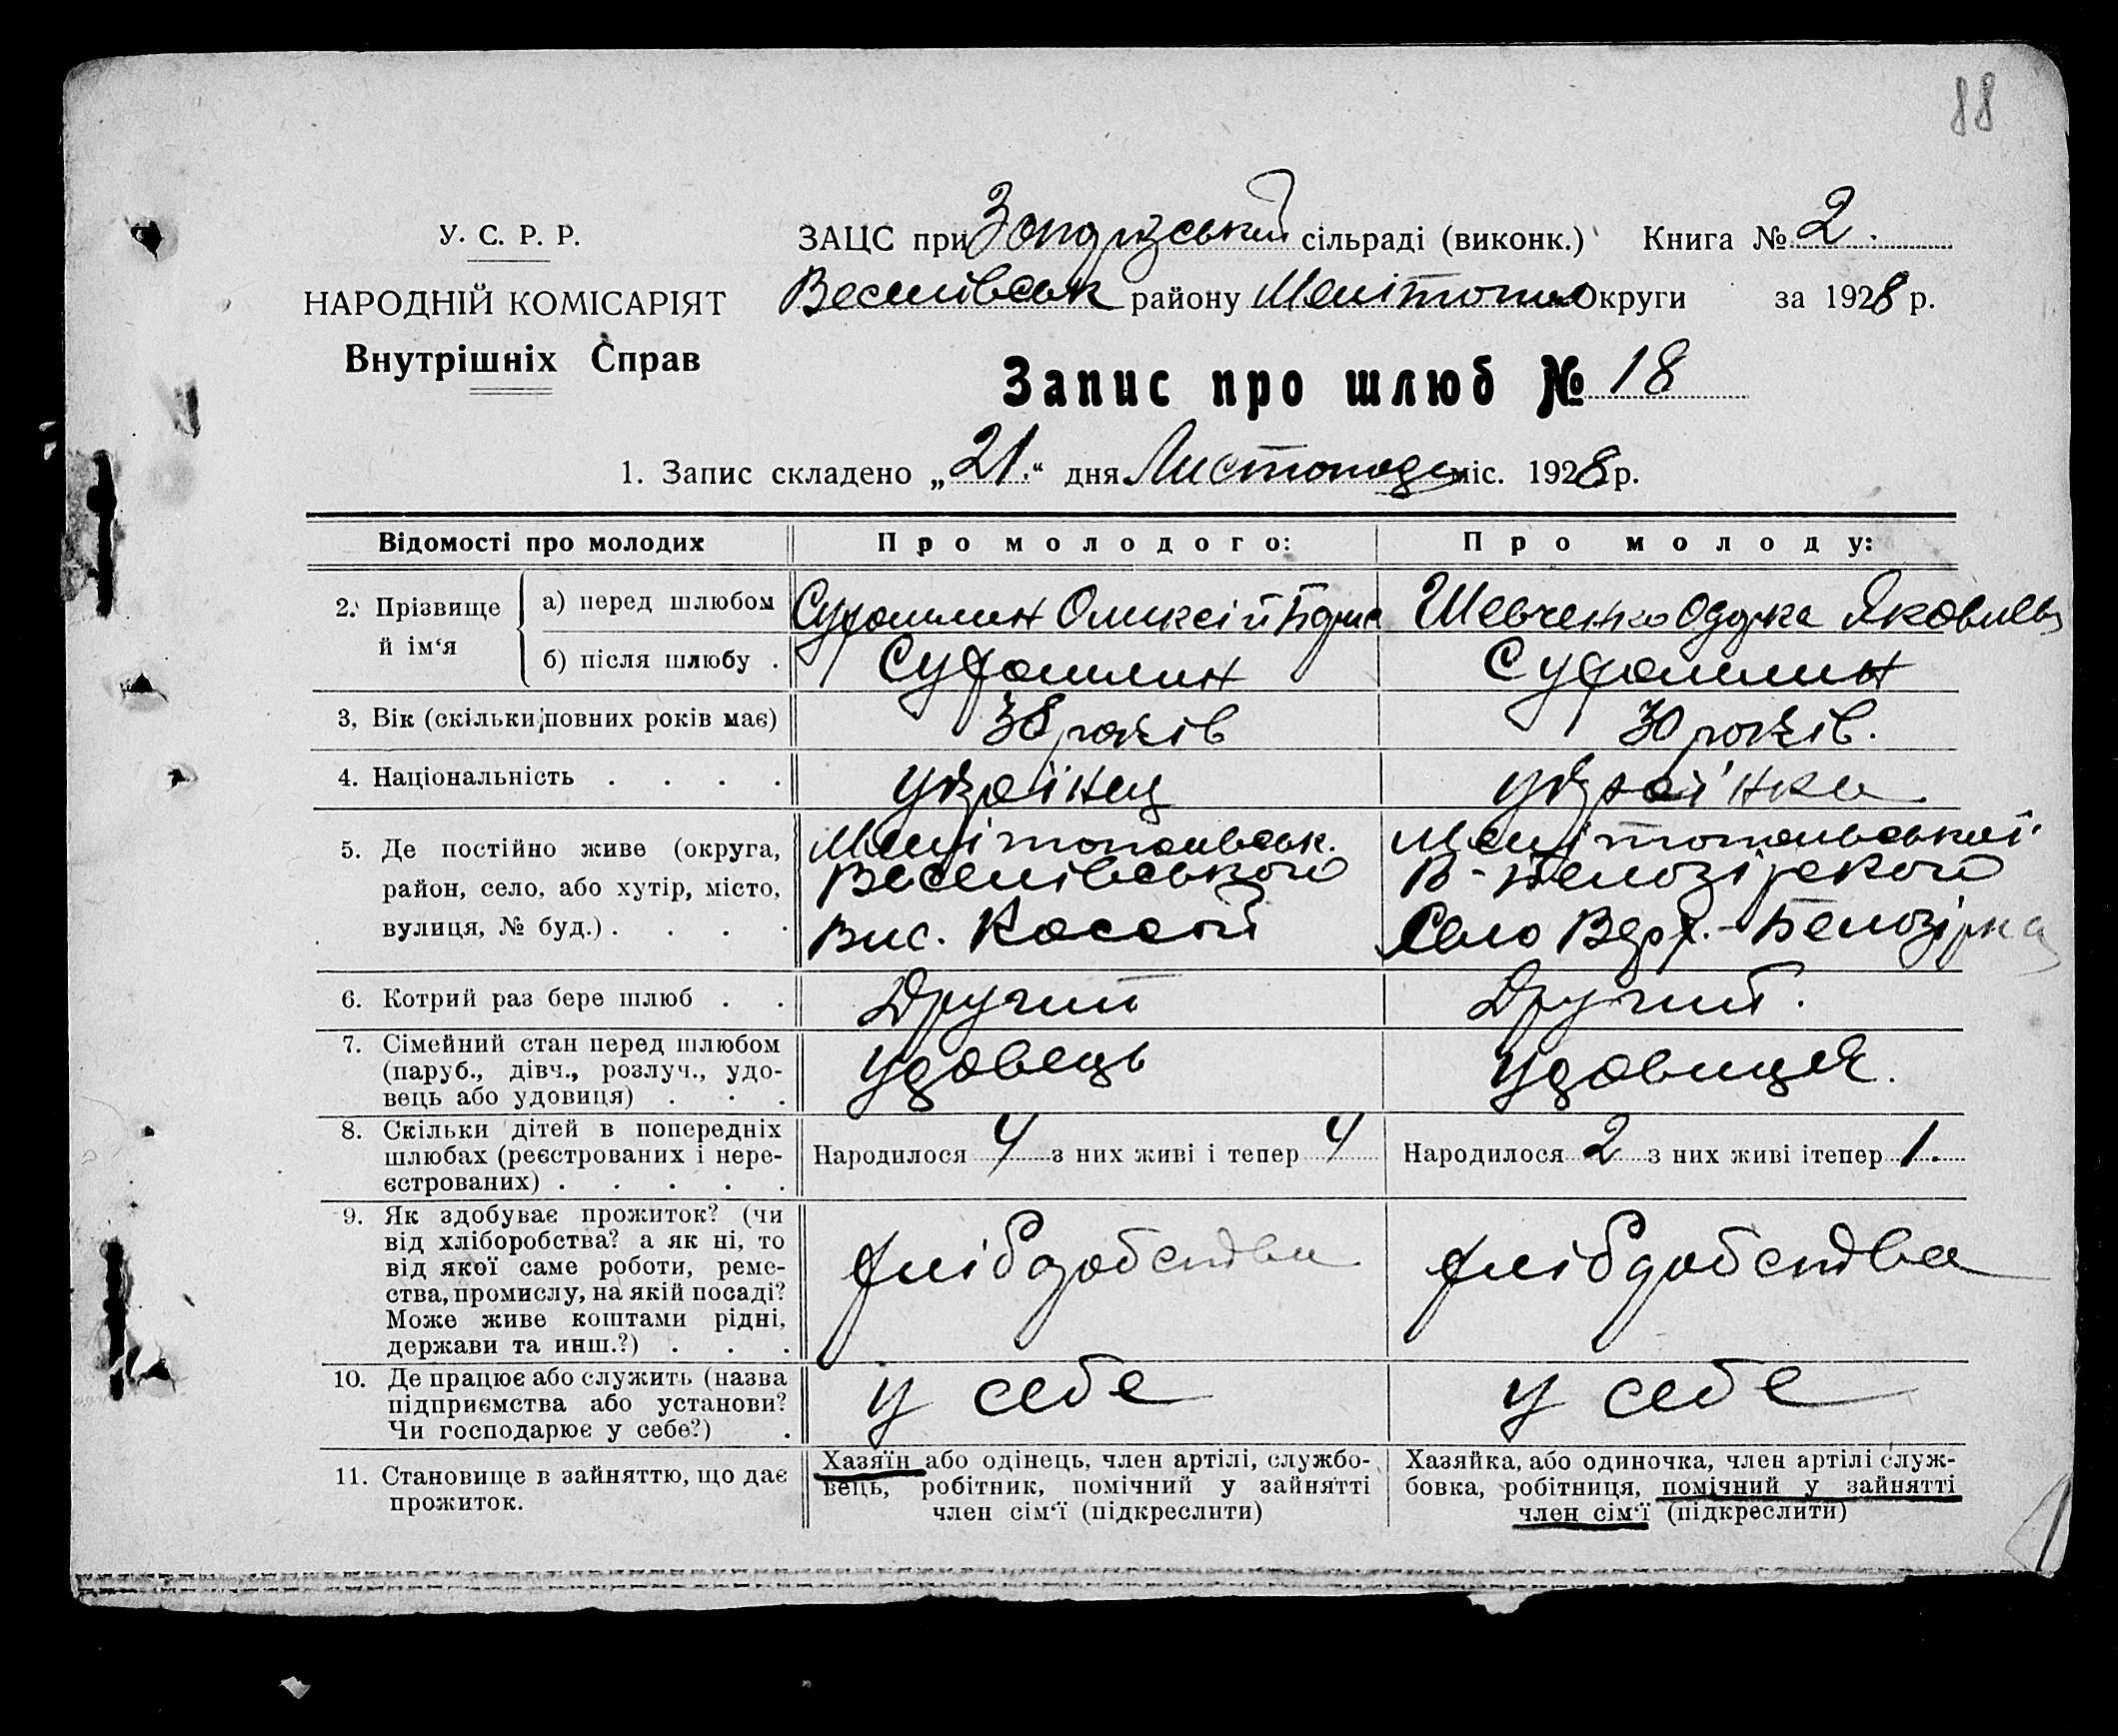 88
У. С. Р. Р.
НАРОДНІЙ КОМІСАРІЯТ
Внутрішніх Справ
ЗАЦС при сільраді (виконк.) Книга № 2.
Веселівськ району Мелітопол Округи за 1928 р.
Запис про шлюб № 18
1. Запис складено „21.“ дня Листопада міс. 1928 р.
Відомості про молодих Про молодого: Про молоду:
2. Прізвище й ім‘я
а) перед шлюбом Олексій Шевченко Яковлев
б) після шлюбу .
3, Вік (скільки повних років має) 38 років 30 років.
4. Національність . . . . українец українка
5. Де постійно живе (округа,
район, село, або хутір, місто,
вулиця, № буд.) . . . .
Мелітопольськ.
Веселівського
Вис.
Мелітопольської
В-Белозірского
Село Верх.-Белозірка
6. Котрий раз бере шлюб . . Другий Другий.
7. Сімейний стан перед шлюбом
(паруб., дівч., розлуч., удо-
вець або удовиця) . . .
удовець удовиця.
8. Скільки дітей в попередніх
шлюбах (реєстрованих і нере-
єстрованих) . . . . .
Народилося 4 з них живі і тепер 4 Народилося 2 з них живі ітепер 1.
9. Як здобуває прожиток? (чи
від хліборобства? а як ні, то
від якої саме роботи, реме-
ства, промислу, на якій посаді?
Може живе коштами рідні,
держави та инш.?) . . .
хліборобства хліборобства
10. Де працює або служить (назва
підприємства або установи?
Чи господарює у себе?) .
у себе у себе
11. Становище в зайняттю, що дає
прожиток.
Хазяїн або одінець, член артілі, службо-
вець, робітник, помічний у зайнятті
член сім‘ї (підкреслити)
Хазяйка, або одиночка, член артілі служ-
бовка, робітниця, помічний у зайнятті
член сім‘ї (підкреслити)